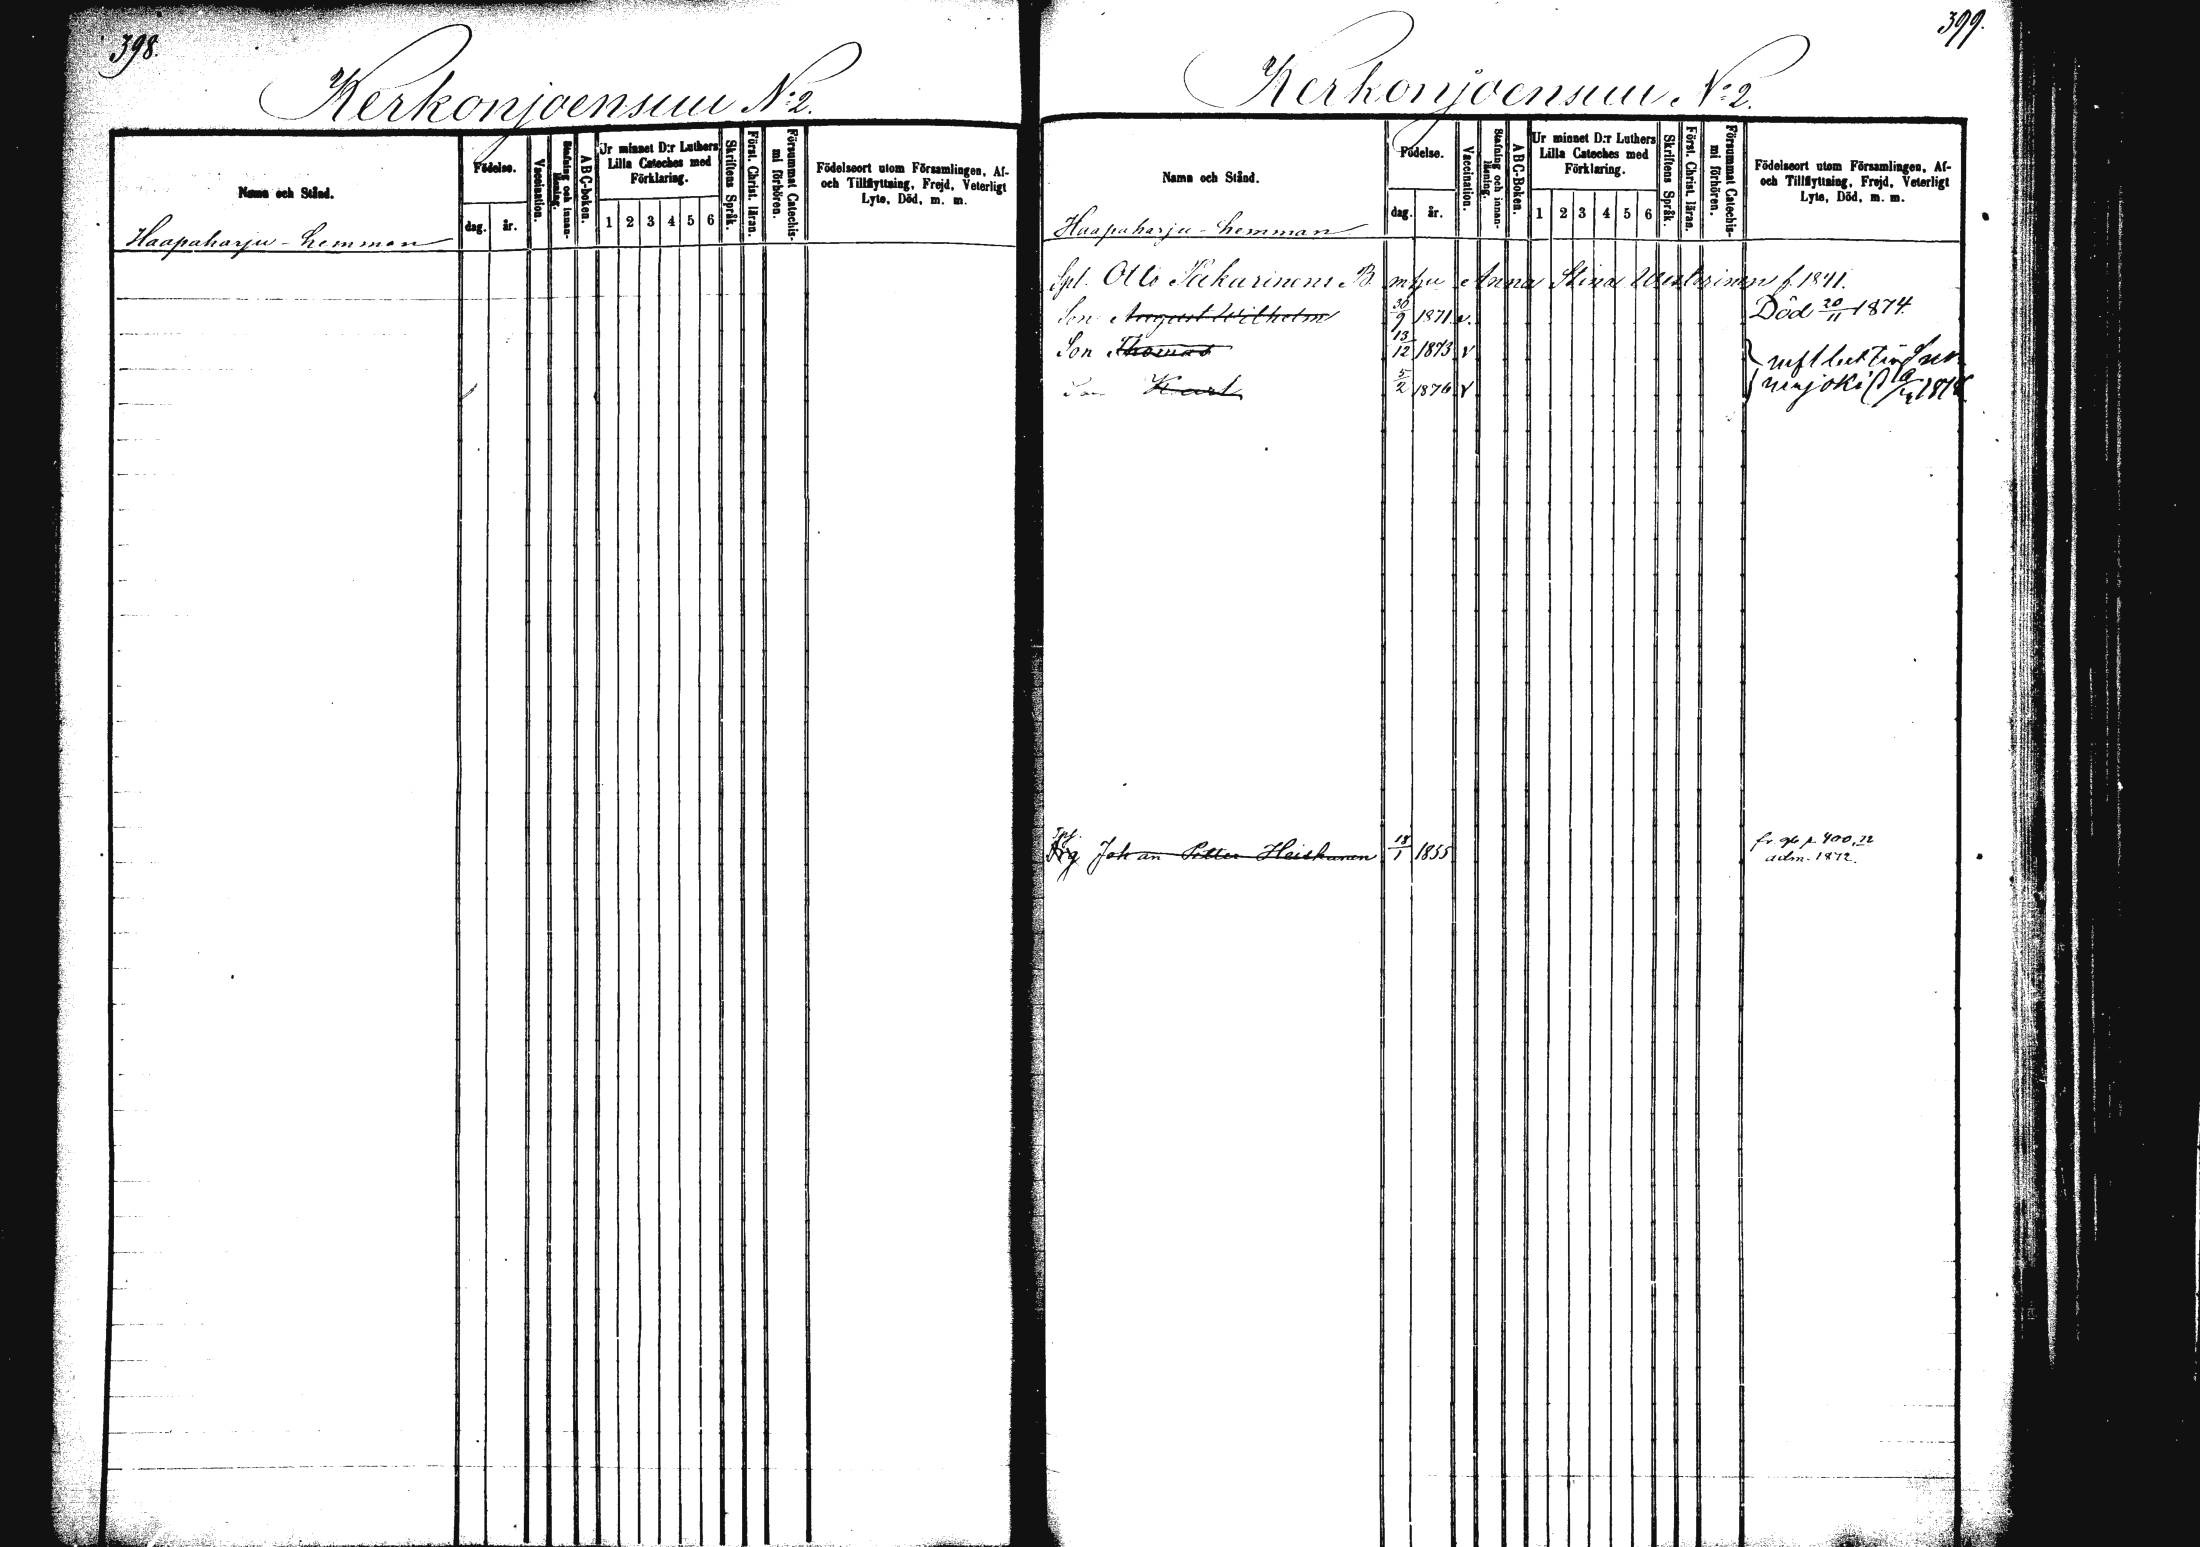 398.
Kerkonjoensuu N:2.
Namn och Stånd.
Födelse.
dag. år.
Vaccination.
Stafning och innan-läsning.
ABC-boken.
Ur minnet D:r Luthers
Lilla Cateches med
Förklaring.
1 2 3 4 5 6
Skriftens Språk.
Först. Christ. läran.
Försummat Catechis-
mi förhören.
Födelseort utom Församlingen, Af-
och Tillflyttning, Frejd, Veterligt
Lyte, Död, m. m.
Haapaharju - hemman
399.
Kerkonjoensuu N:2.
Namn och Stånd.
Födelse.
dag. år.
Vaccination.
Stafning och innan-läsning.
ABC-Boken.
Ur minnet D:r Luthers
Lilla Cateches med
Förklaring.
1 2 3 4 5 6
Skriftens Språk.
Först. Christ. läran.
Försummat Catechis-
mi förhören.
Födelseort utom Församlingen, Af-
och Tillflyttning, Frejd, Veterligt
Lyte, Död, m. m.
Haapaharju - hemman
Spt. Otto B. Anna Stina f. 1841.
Son August Wilhelm 30/9 1871 v. Död 20/11 1874.
Son Thomas 13/12 1873 v
Son Karl 5/2 1876 v
Spt.
Johan Petter Heiskanen 18/1 1855 fr. p. 400, 72
adm. 1872.